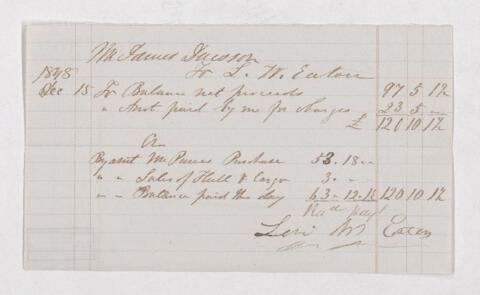 Mr James Dawson
To L. W. Eaton
1848
Dec 15 To Balance net proceeds 97 5 1½
" Amt paid by me for Charges 23 5 --
£ 120 10 1½
Cr
By amt Mr Purves Purchase 53 . 18 --
" " Sales of Hull & Cargo 3 . --
" " Balance paid this day 63 . 12 . 1½ 120 10 1½
Levi W Eaton